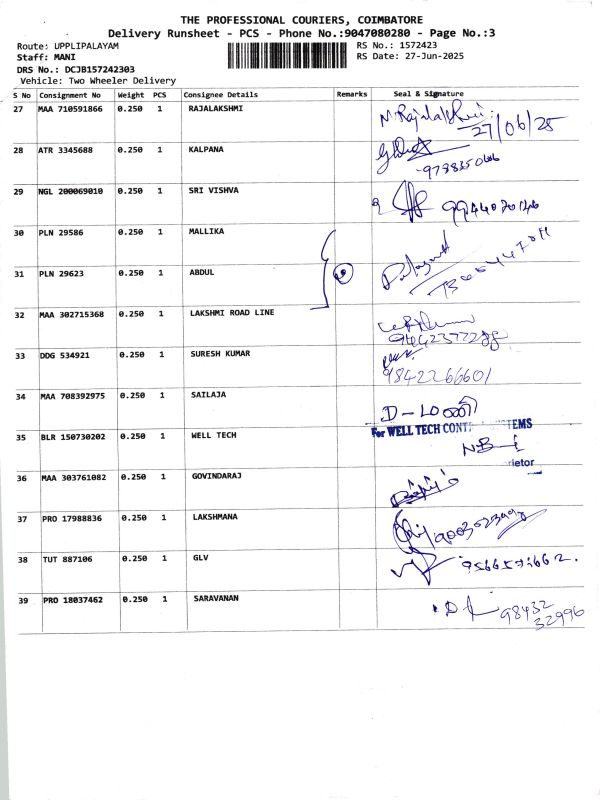 THE PROFESSIONAL COURIERS, COIMBATORE
Delivery Runsheet - PCS - Phone No.:9047080280 - Page No.:3
Route: UPPLIPALAYAM
RS No.: 1572423
Staff: MANI
RS Date: 27-Jun-2025
DRS No.: DCJB157242303
Vehicle: Two Wheeler Delivery
S No Consignment No Weight PCS Consignee Details Remarks Seal & Signature
27 MAA 710591866 0.250 1 RAJALAKSHMI
27/06/25
28 ATR 3345688 0.250 1 KALPANA
29 NGL 200069010 0.250 1 SRI VISHVA
30 PLN 29586 0.250 1 MALLIKA
31 PLN 29623 0.250 1 ABDUL
32 MAA 302715368 0.250 1 LAKSHMI ROAD LINE
33 DDG 534921 0.250 1 SURESH KUMAR
9842266601
34 MAA 708392975 0.250 1 SAILAJA
D-மணி
35 BLR 150730202 0.250 1 WELL TECH
For WELL TECH
36 MAA 303761082 0.250 1 GOVINDARAJ
37 PRO 17988836 0.250 1 LAKSHMANA
38 TUT 887106 0.250 1 GLV
39 PRO 18037462 0.250 1 SARAVANAN
98432
32996